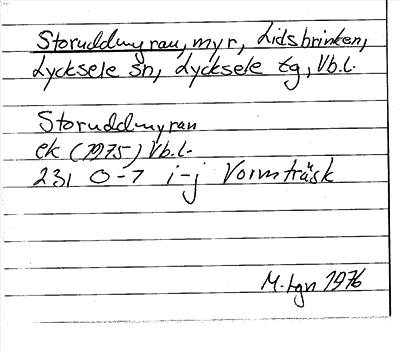 Storuddmyran, myr, Lidsbrinken,
Lycksele sn, Lycksele tg, Vb.l.
Storuddmyran
ek (1975) Vb.l.
231 0-7 i-j Vormträsk
M-tgn 1976